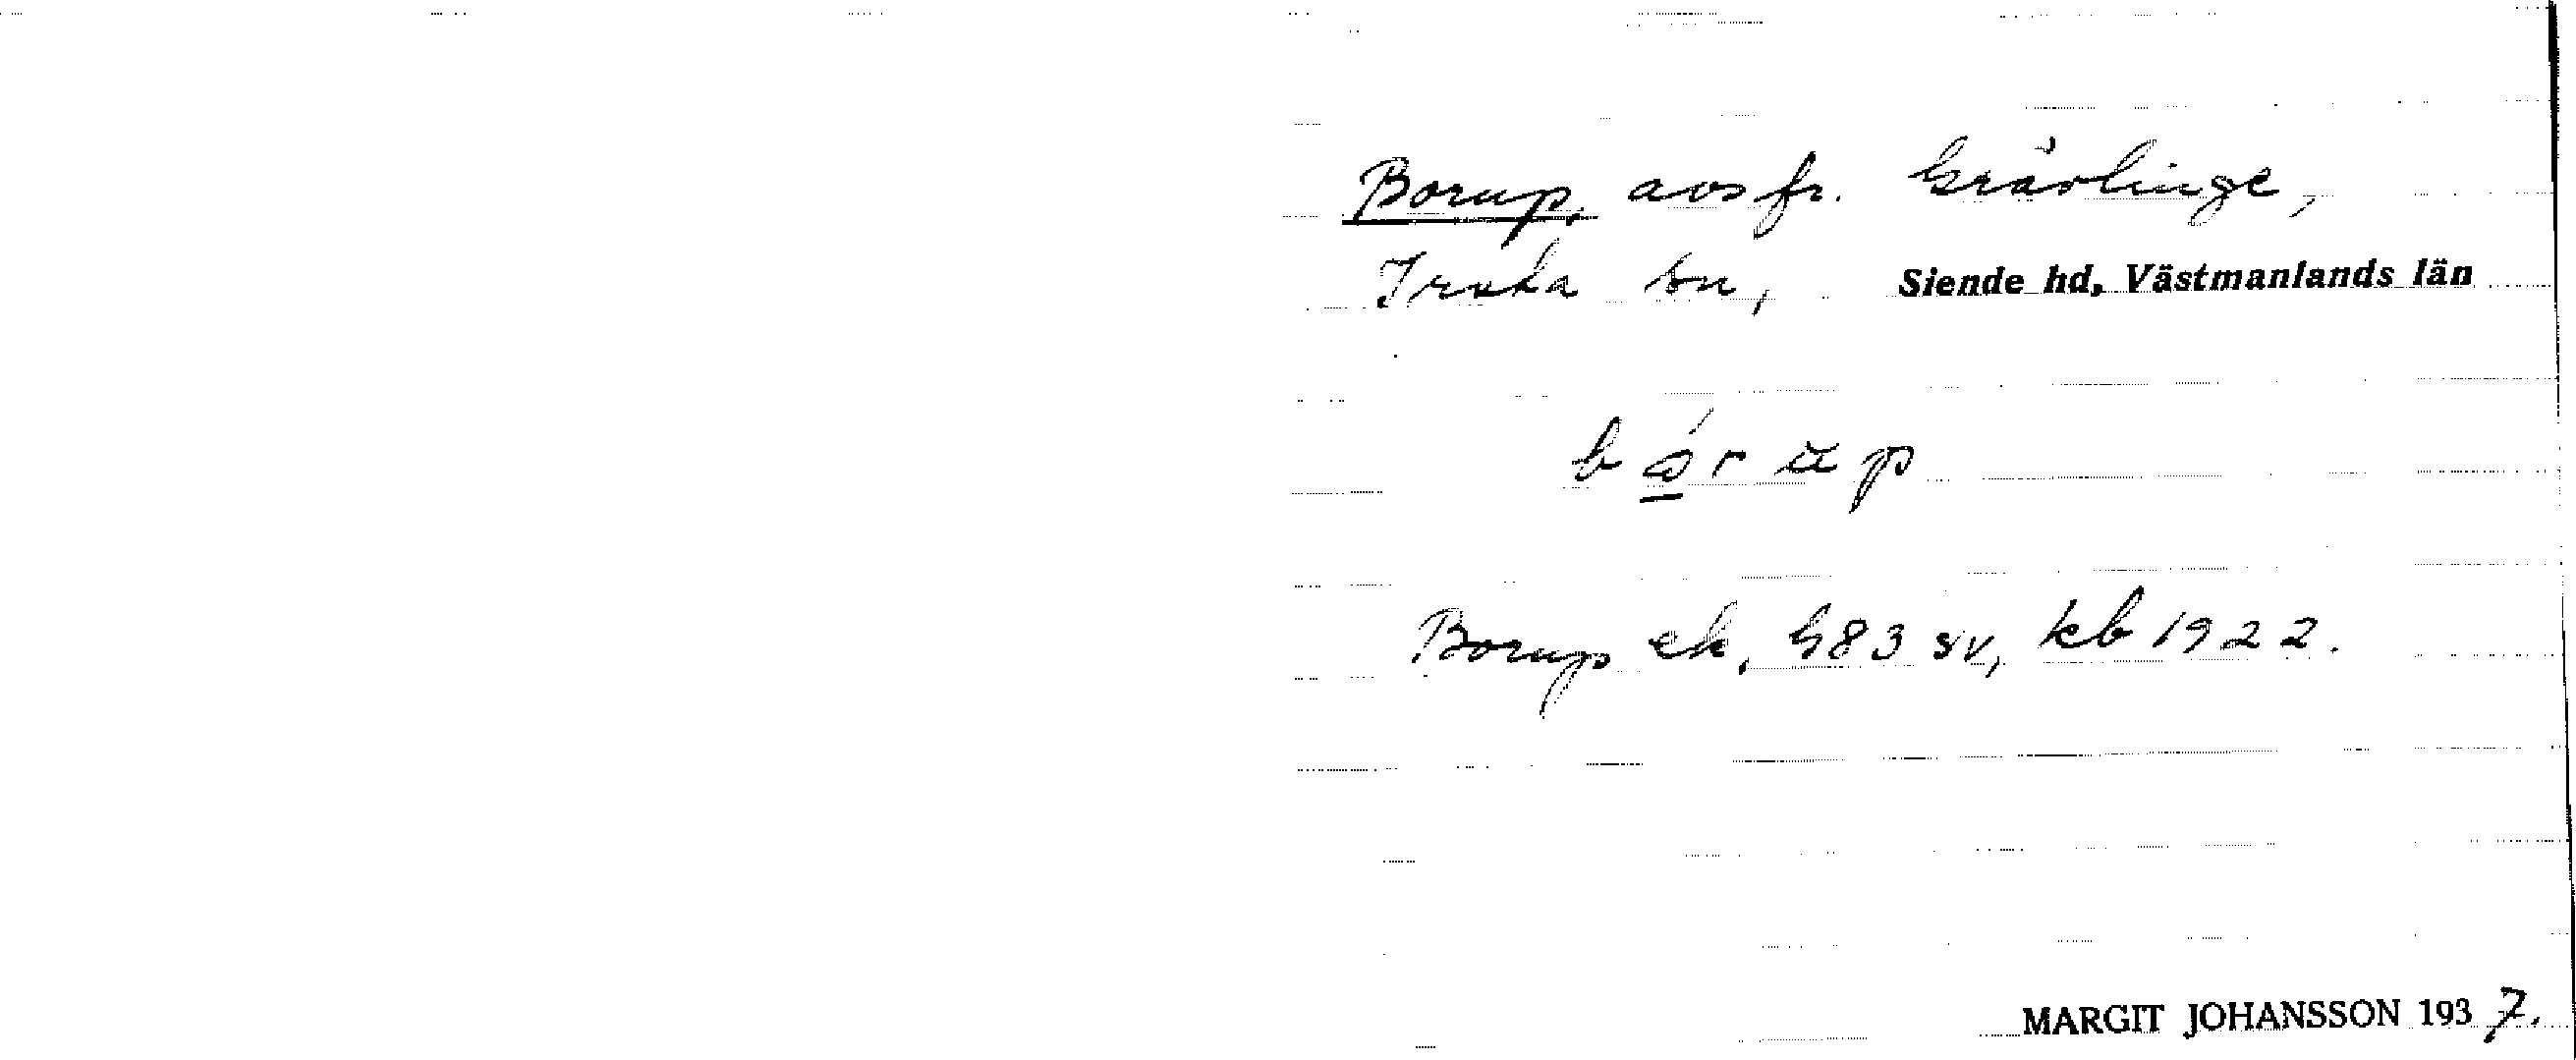 Borup, avs fr. Grävlinge,
Irsta sn, Siende hd, Västmanlands län
bórŭp
Borup ek, G83 sv, kb 1922.
MARGIT JOHANSSON 1937.